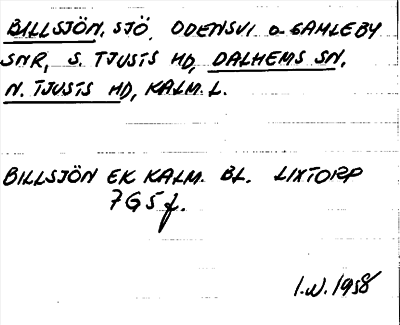 BILLSJÖN, SJÖ, ODENSVI o GAMLEBY
SNR, S. TJUSTS HD, DALHEMS SN,
N. TJUSTS HD, KALM. L.
BILLSJÖN EK KALM. BL. LIXTORP
7G5f.
I.W. 1958